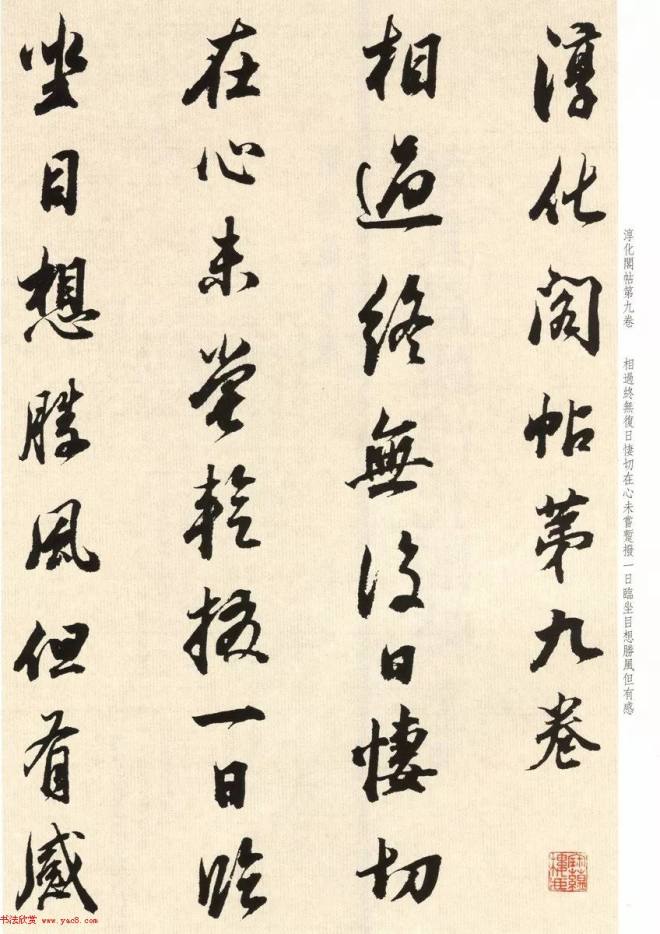 淳化閣帖第九卷
相過終無復日悽切
在心未嘗暫撥一日臨
坐目想勝風但有感
淳化閣帖第九卷 相過終無復日悽切在心未嘗暫撥一日臨坐目想勝風但有感
书法欣赏 www.yac8.com